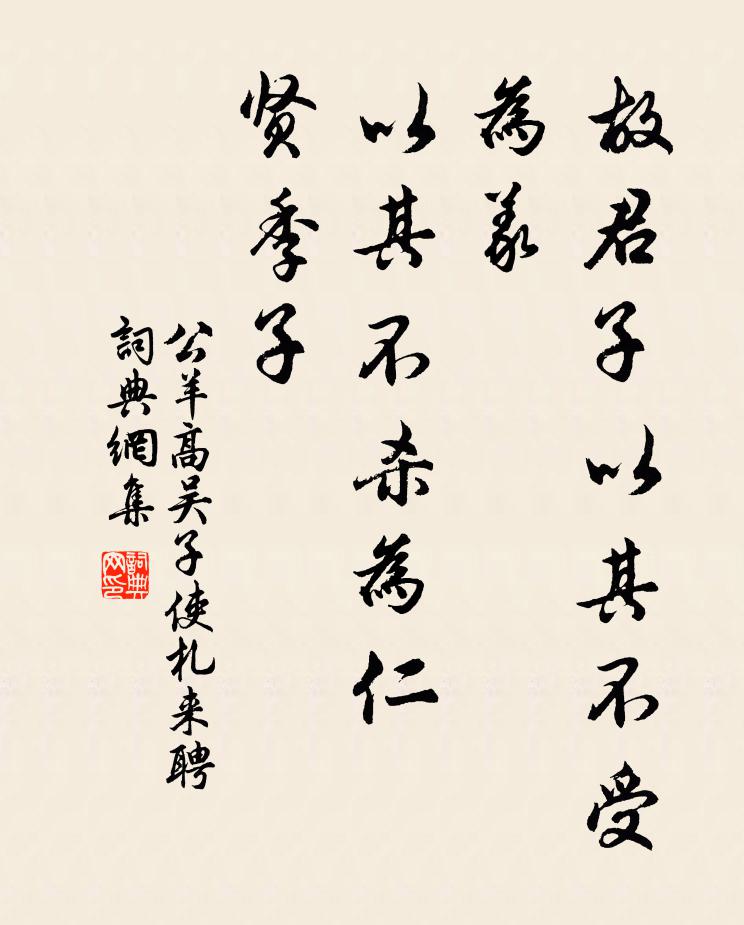 故君子以其不受
為義
以其不杀為仁
贤季子
公羊高吴子使札来聘
詞典網集
詞典网印